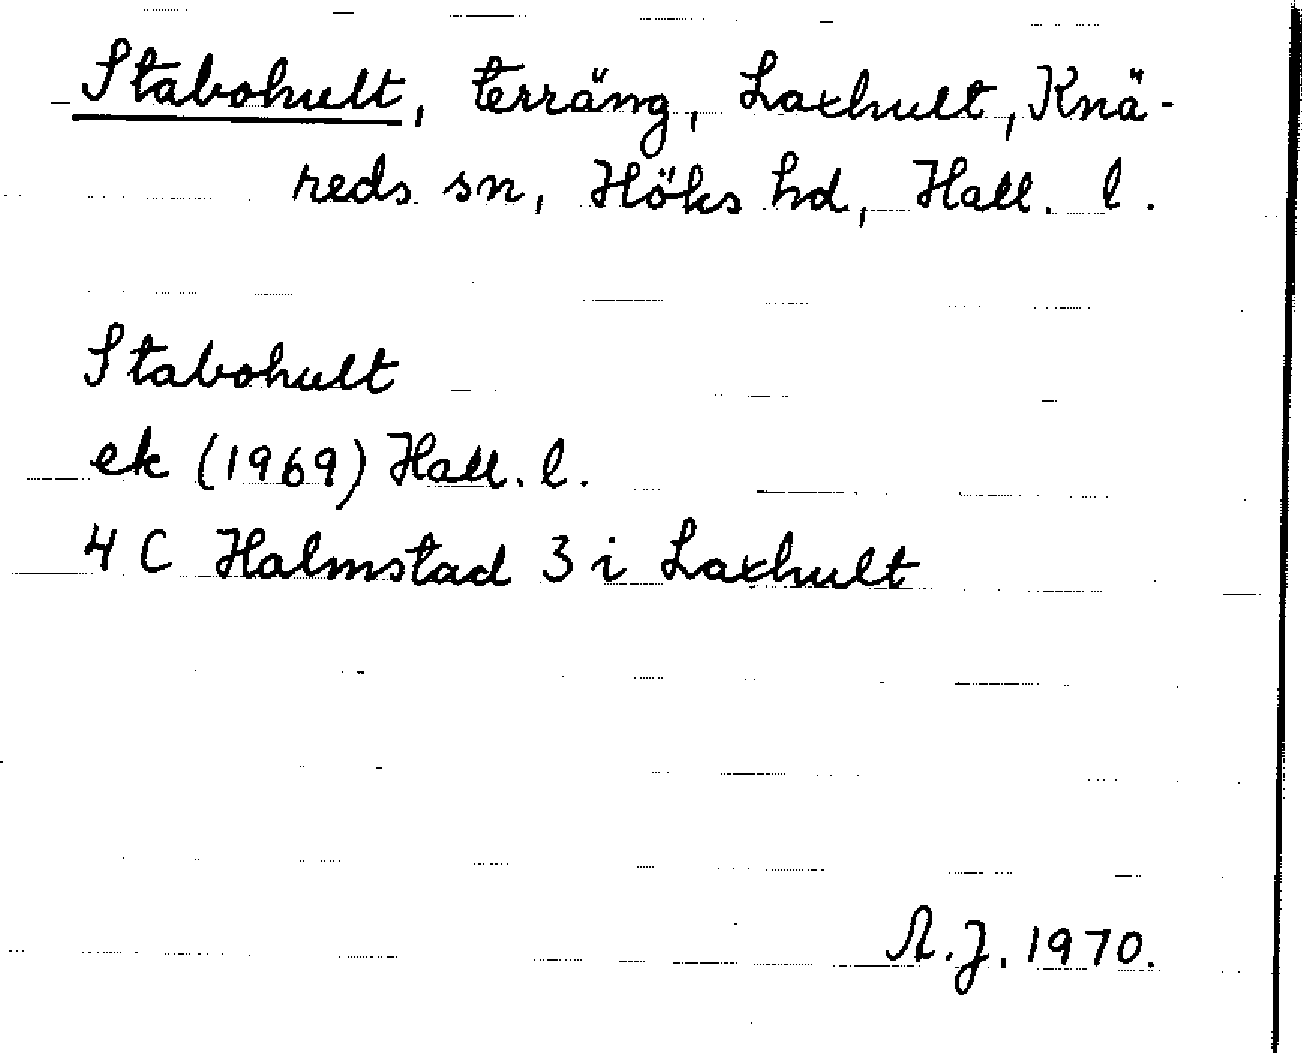 Stabohult, terräng, Laxhult, Knä-
reds sn, Höks hd, Hall. l.
Stabohult
ek (1969) Hall. l.
4 C Halmstad 3 i Laxhult
A.J. 1970.